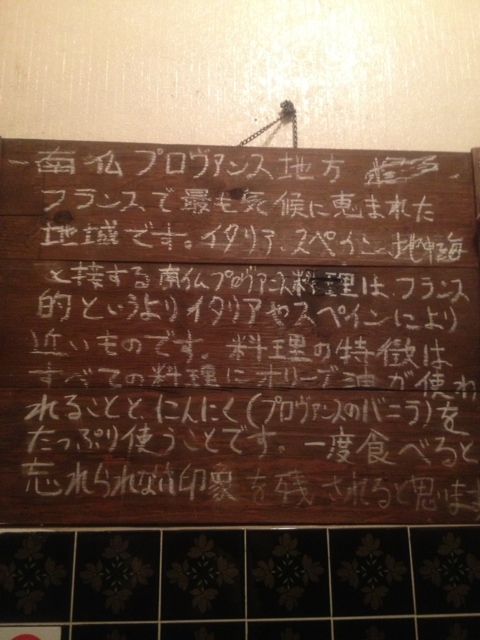 一南仏プロヴァンス地方
フランスで最も気候に恵まれた
地域です。イタリア、スペイン、地中海
と接する南仏プロヴァンス料理は、フランス
的というよりイタリアやスペインにより
近いものです。料理の特徴は
すべての料理にオリーブ油が使わ
れることと、にんにく(プロヴァンスのバニラ)を
たっぷり使うことです。一度食べると
忘れられない印象を残されると思いま